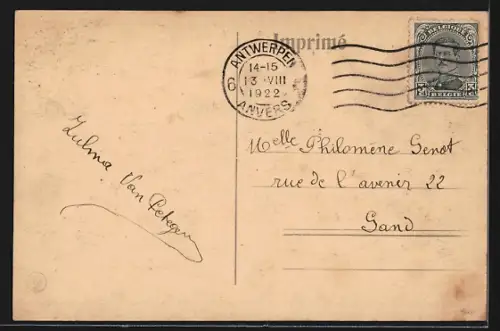 Imprimé
BELGIQUE
BELGIE
ANTWERPEN
14-15
13 VIII
1922
6
ANVERS
Melle Philomène Genot
rue de l'avenir 22
Gand
Zulma Van Petegem